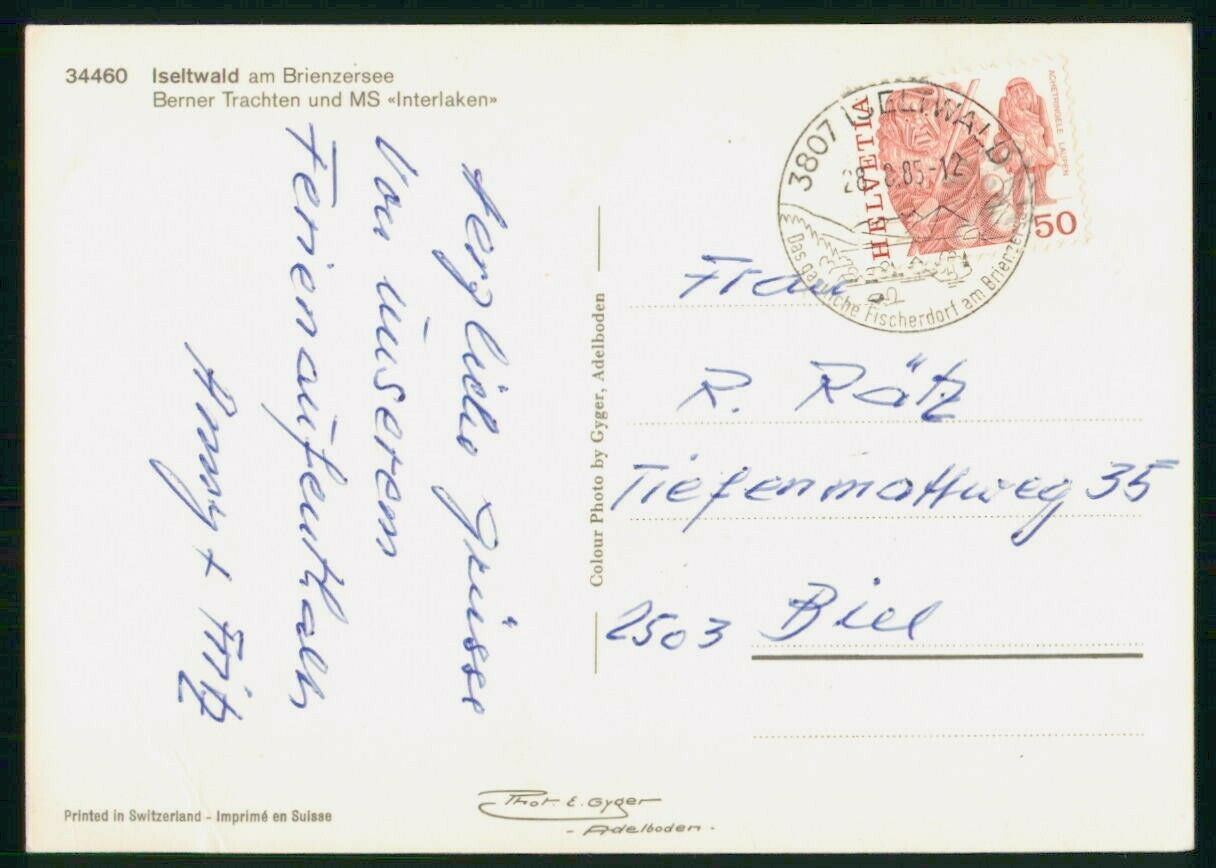 34460 Iseltwald am Brienzersee
Berner Trachten und MS «Interlaken»
Herzliche Grüsse
Von unserem
Ferienaufenthalt
Fritz
HELVETIA
ACHETRINGELE LAUPEN
50
3807 ISELTWALD
.85-12
Das gastliche Fischerdorf am Brienzersee
Frau
R. Rätz
Tiefenmattweg 35
2503 Biel
Colour Photo by Gyger, Adelboden
Printed in Switzerland - Imprimé en Suisse
Phot. E. Gyger
- Adelboden -